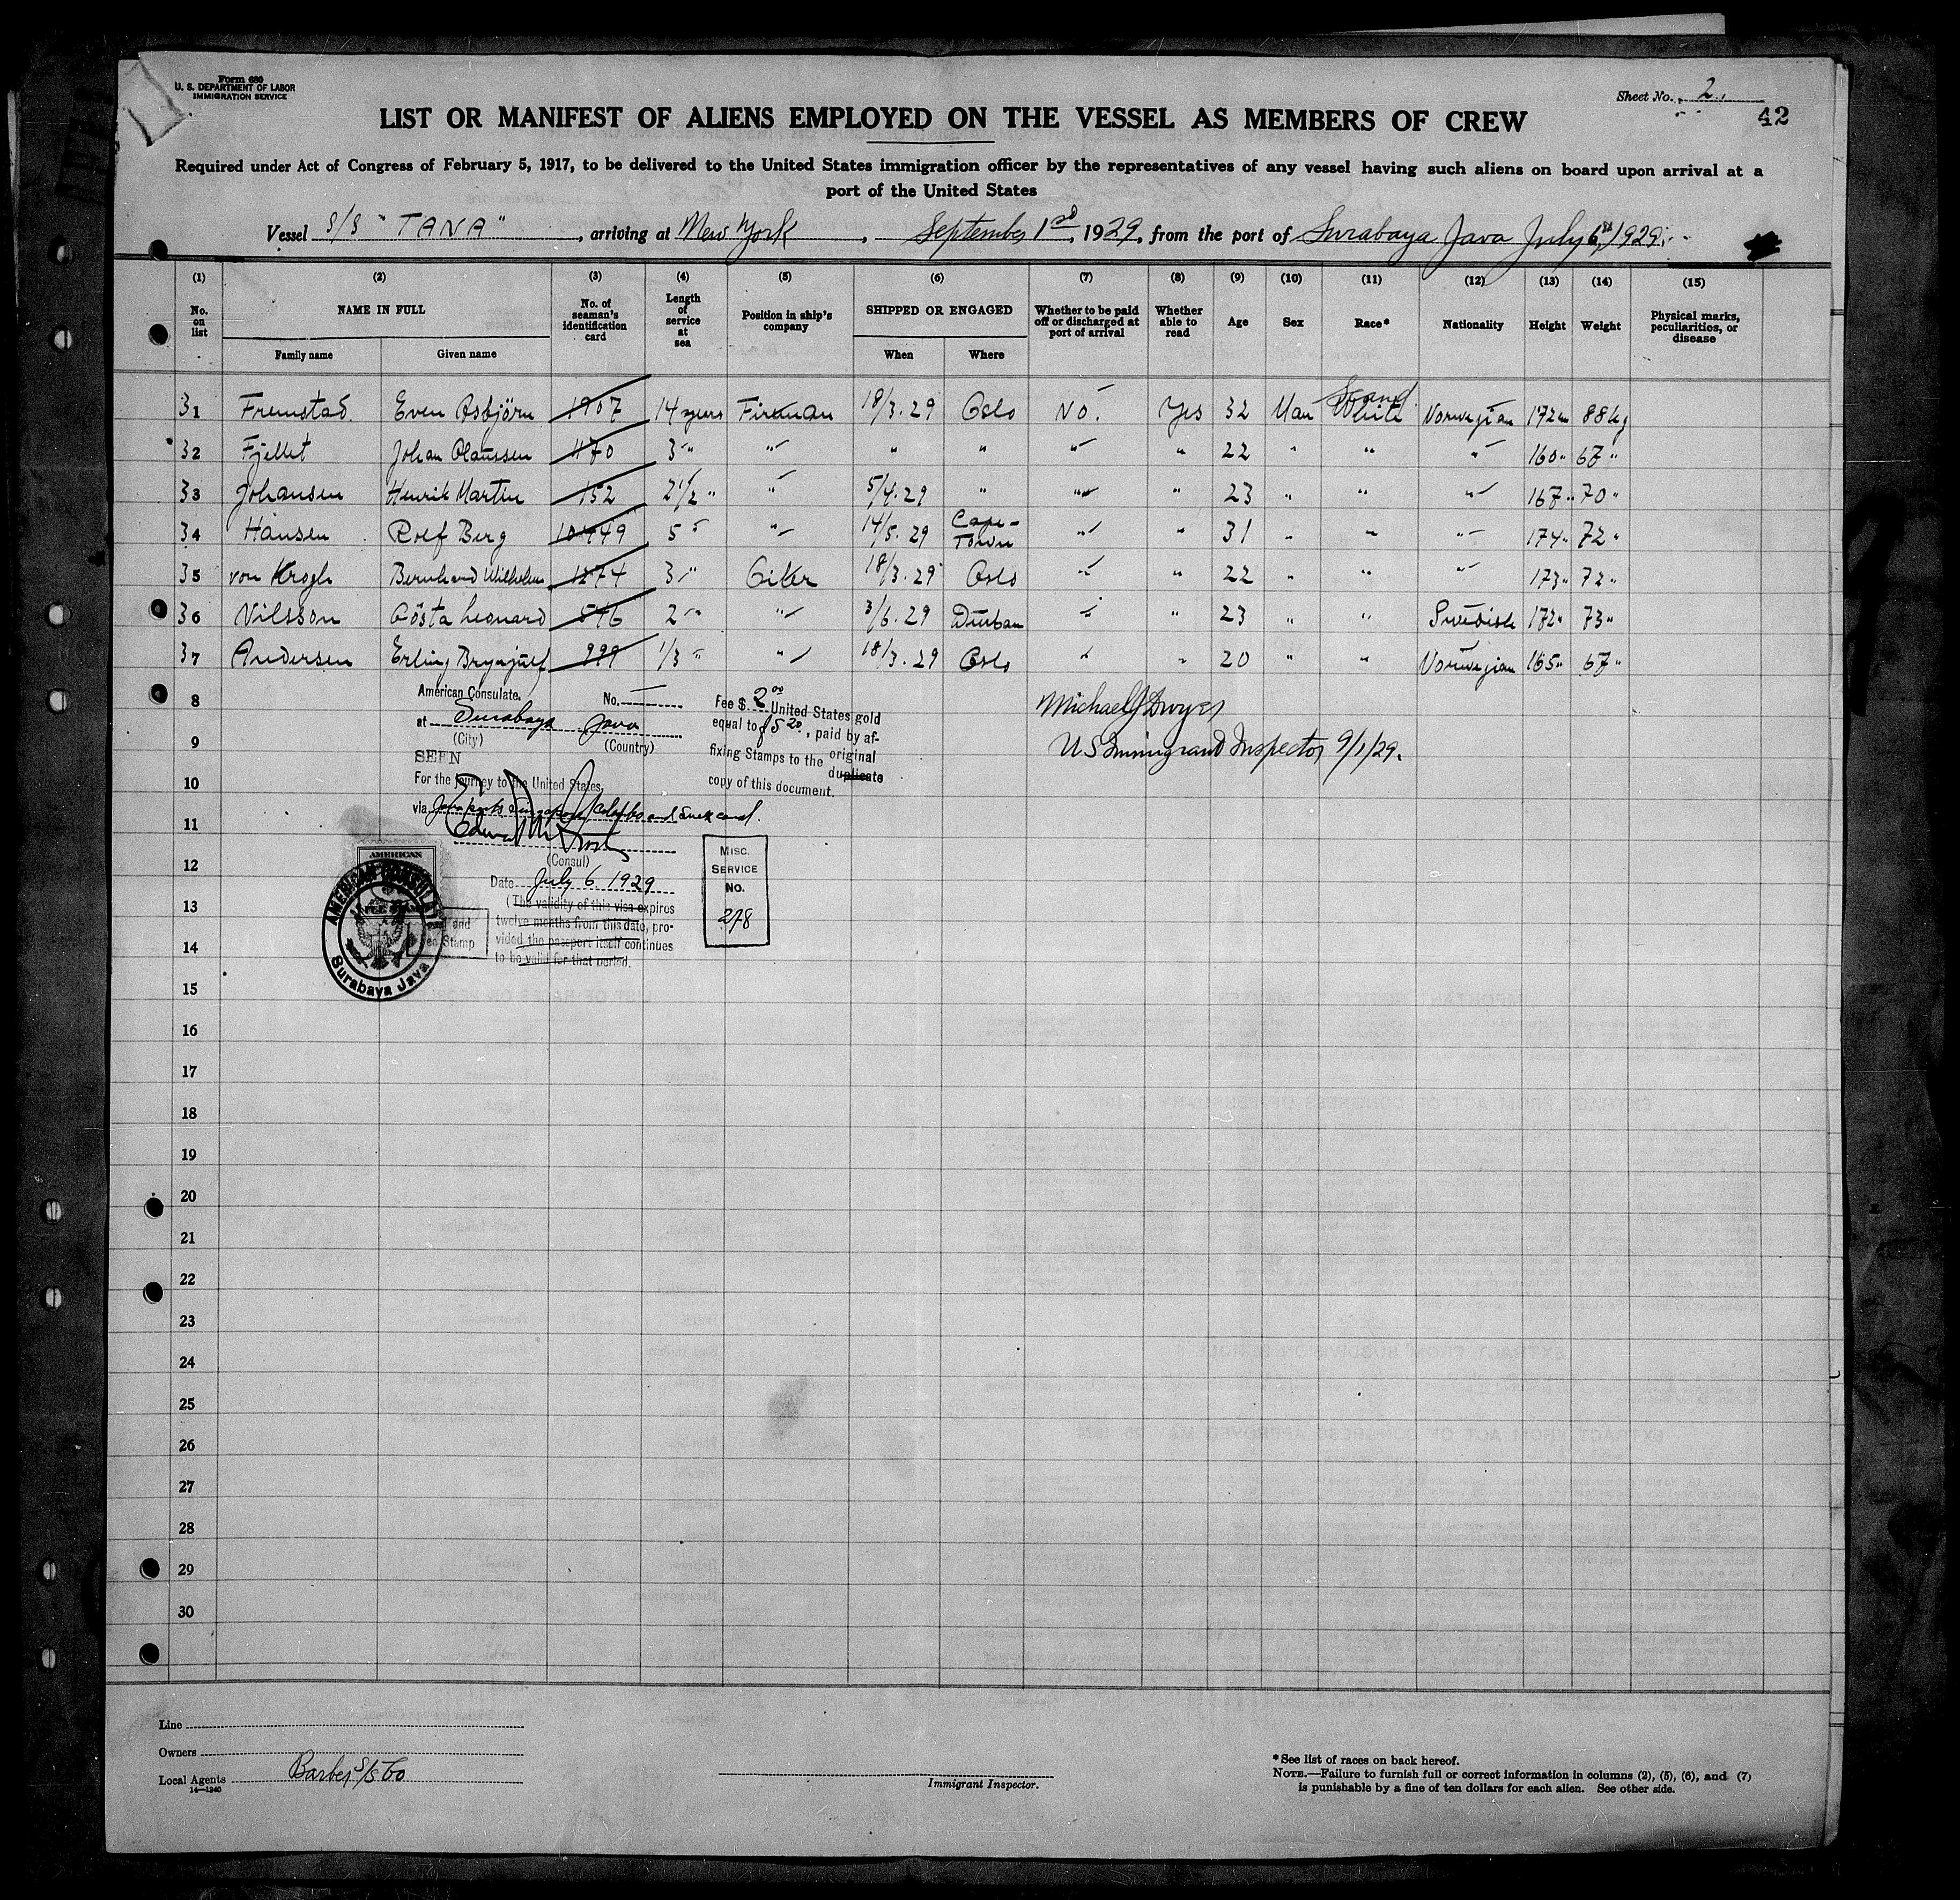 Form 680
U. S. DEPARTMENT OF LABOR
IMMIGRATION SERVICE
Sheet No. 2.
42
LIST OR MANIFEST OF ALIENS EMPLOYED ON THE VESSEL AS MEMBERS OF CREW
Required under Act of Congress of February 5, 1917, to be delivered to the United States immigration officer by the representatives of any vessel having such aliens on board upon arrival at a
port of the United States
Vessel S/S "TANA", arriving at New York, September 1st, 1929, from the port of Surabaya Java July 6th, 1929.
(1) (2) (3) (4) (5) (6) (7) (8) (9) (10) (11) (12) (13) (14) (15)
No. on list
NAME IN FULL
Family name
Given name
No. of seaman's identification card
Length of service at sea
Position in ship's company
SHIPPED OR ENGAGED
When
Where
Whether to be paid off or discharged at port of arrival
Whether able to read
Age
Sex
Race*
Nationality
Height
Weight
Physical marks, peculiarities, or disease
31 Fremstad. Even Asbjörn 1907 14 years Fireman 18/3.29 Oslo No. Yes 32 Man Scand White Norwegian 172 cm 88 kg
32 Fjellet Johan Olaussen 470 3 " " " " " " 22 " " " 160 " 67 "
33 Johansen Henrik Martin 152 2 1/2 " " 5/4.29 " " " 23 " " " 167 " 70 "
34 Hansen Rolf Berg 10449 5 " " 14/5.29 Cape-Town " " 31 " " " 174 " 72 "
35 von Krogh Bernhard Wilhelm 1274 3 " Oiler 18/3.29 Oslo " " 22 " " " 173 " 72 "
36 Nilsson Gösta Leonard 546 2 " " 3/6.29 Durban " " 23 " " Swedish 172 " 73 "
37 Andersen Erling Brynjulf 999 1/3 " " 18/3.29 Oslo " " 20 " " Norwegian 165 " 67 "
8
9
10
11
12
13
14
15
16
17
18
19
20
21
22
23
24
25
26
27
28
29
30
American Consulate.
No.
at Surabaya Java
(City) (Country)
SEEN
For the journey to the United States
via Java ports Singapore Colombo and Suez canal.
(Consul)
Date July 6. 1929
(The validity of this visa expires
twelve months from this date, pro-
vided the passport itself continues
to be valid for that period.
Fee $ 2.00 United States gold
equal to f 5.20, paid by af-
fixing Stamps to the original
duplicate
copy of this document.
MISC.
SERVICE
NO.
278
AMERICAN
AMERICAN CONSULATE
Surabaya Java
and
Stamp
Michael J Dwyer
US Immigrant Inspector 9/1/29.
Line
Owners
Local Agents Barber S/S Co
14—1240
Immigrant Inspector.
*See list of races on back hereof.
NOTE.—Failure to furnish full or correct information in columns (2), (5), (6), and (7)
is punishable by a fine of ten dollars for each alien. See other side.